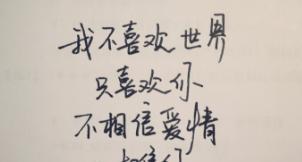 我不喜欢世界
只喜欢你
不相信爱情